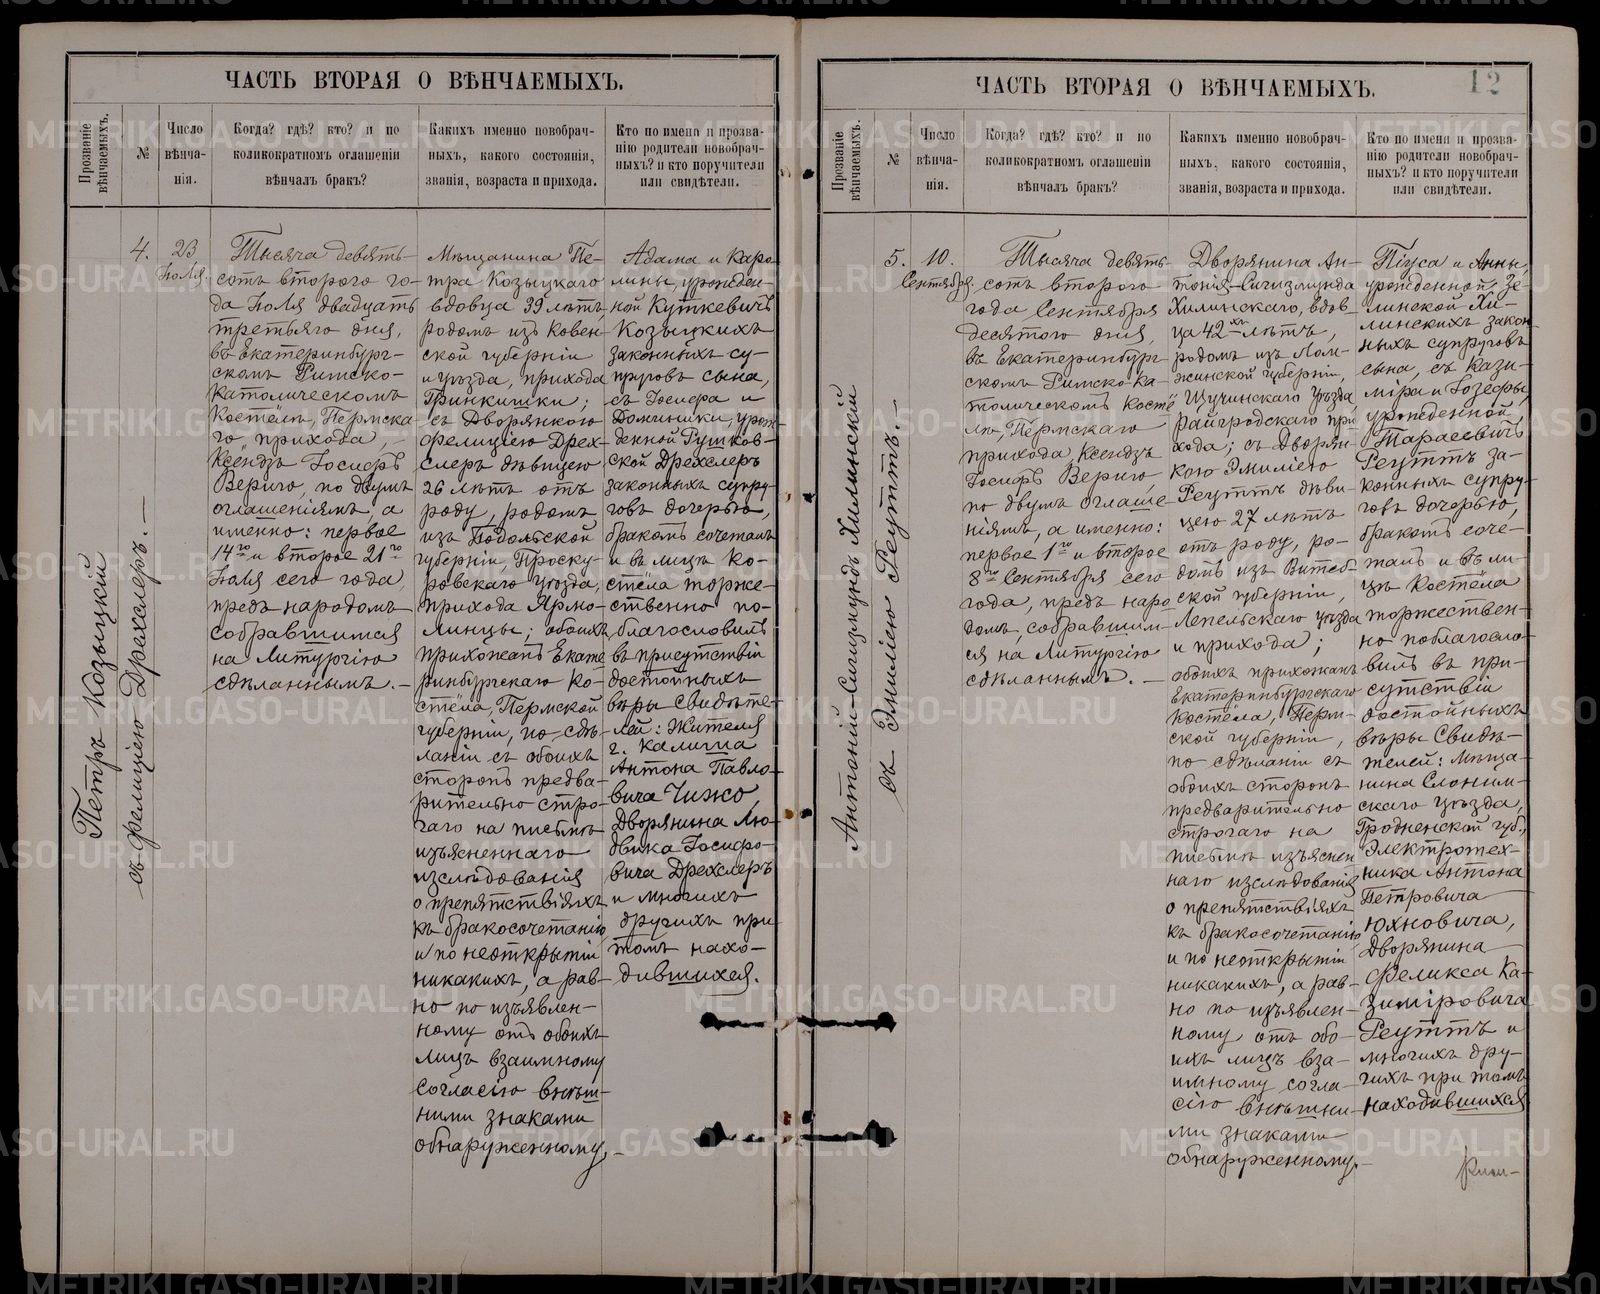 ЧАСТЬ ВТОРАЯ О ВѢНЧАЕМЫХЪ.
Прозваніе вѣнчаемыхъ.
№
Число
вѣнча-
нія.
Когда? гдѣ? кто? и по
коликократномъ оглашеніи
вѣнчалъ бракъ?
Какихъ именно новобрач-
ныхъ, какого состоянія,
званія, возраста и прихода.
Кто по имени и прозва-
нію родители новобрач-
ныхъ? и кто поручители
или свидѣтели.
Петръ Козыцкій
съ Фелиціею Драхслеръ. —
4.
23
Іюля.
Тысяча девять-
сотъ второго го-
да Іюля двадцать
третьяго дня,
въ Екатеринбург-
скомъ Римско-
Католическомъ
Костёлѣ, Пермска-
го, прихода, —
Ксёндзъ Іосифъ
Вериго, по двумъ
оглашеніямъ, а
именно: первое
14го и второе 21го
Іюля сего года,
предъ народомъ
собравшимся
на Литургію
сдѣланнымъ. —
Мѣщанина Пе-
тра Козыцкаго
вдовца 39 лѣтъ,
родомъ изъ Ковен-
ской губерніи
и уѣзда, прихода
Гринкишки;
съ Дворянкою
Фелиціею Дрех-
слеръ дѣвицею
26 лѣтъ отъ
роду, родомъ
изъ Подольской
губерніи, Проску-
ровскаго уѣзда,
прихода Ярмо-
линцы; обоихъ
прихожанъ Екате-
ринбургскаго Ко-
стёла, Пермской
губерніи, по сдѣ-
ланіи съ обоихъ
сторонъ предва-
рительно стро-
гаго на письмѣ
изъясненнаго
изслѣдованія
о препятствіяхъ
къ бракосочетанію
и по неоткрытіи
никакихъ, а рав-
но по изъявлен-
ному отъ обоихъ
лицъ взаимному
согласію внѣш-
ними знаками
обнаруженному. —
Адама и Каро-
лины, урожден-
ной Куткевичъ
Козыцкихъ
законныхъ су-
пруговъ сына,
съ Іосифа и
Доминики, урож-
денной Рутков-
ской Дрехслеръ
законныхъ супру-
говъ дочерью,
бракомъ сочеталъ
и въ лицѣ Ко-
стёла торже-
ственно по-
благословилъ
въ присутствіи
достойныхъ
вѣры Свидѣте-
лей: Жителя
г. Калиша
Антона Павло-
вича Чижо,
Дворянина Лю-
двика Іосифо-
вича Дрехслеръ
и многихъ
другихъ при
томъ нахо-
дившихся.
ЧАСТЬ ВТОРАЯ О ВѢНЧАЕМЫХЪ.
12
Прозваніе вѣнчаемыхъ.
№
Число
вѣнча-
нія.
Когда? гдѣ? кто? и по
коликократномъ оглашеніи
вѣнчалъ бракъ?
Какихъ именно новобрач-
ныхъ, какого состоянія,
званія, возраста и прихода.
Кто по имени и прозва-
нію родители новобрач-
ныхъ? и кто поручители
или свидѣтели.
Антоній-Сигизмундъ Хилинскій
съ Эмиліею Реуттъ. —
5.
10.
Сентября.
Тысяча девять-
сотъ второго
года Сентября
десятого дня,
въ Екатеринбург-
скомъ Римско-Ка-
толическомъ Костё-
лѣ, Пермскаго
прихода, Ксендзъ
Іосифъ Вериго,
по двумъ оглаше-
ніямъ, а именно:
первое 1го и второе
8го Сентября сего
года, предъ наро-
домъ, собравшим-
ся на Литургію
сдѣланнымъ. —
Дворянина Ан-
тонія-Сигизмунда
Хилинскаго, вдов-
ца 42хъ лѣтъ,
родомъ изъ Лом-
жинской губерніи,
Щучинскаго уѣзда
Райгродскаго при-
хода; съ Дворян-
кою Эмиліею
Реуттъ дѣви-
цею 27 лѣтъ
отъ роду, ро-
домъ изъ Витеб-
ской губерніи,
Лепельскаго уѣзда
и прихода;
обоихъ прихожанъ
Екатеринбургскаго
Костёла, Перм-
ской губерніи,
по сдѣланіи съ
обоихъ сторонъ
предварительно
строгаго на
письмѣ изъяснен-
наго изслѣдованія
о препятствіяхъ
къ бракосочетанію
и по неоткрытіи
никакихъ, а рав-
но по изъявлен-
ному отъ обо-
ихъ лицъ вза-
имному согла-
сію внѣшни-
ми знаками
обнаруженному. —
Піуса и Анны,
урожденной Зе-
линской Хи-
линскихъ закон-
ныхъ супруговъ
сына, съ Кази-
міра и Іозефы,
урожденной
Тарасевичъ
Реуттъ за-
конныхъ супру-
говъ дочерью,
бракомъ соче-
талъ и въ ли-
цѣ Костёла
торжествен-
но поблагосло-
вилъ въ при-
сутствіи
достойныхъ
вѣры Свидѣ-
телей: Мѣща-
нина Слоним-
скаго уѣзда,
Гродненской губ.,
Электротех-
ника Антона
Петровича
Юхновича,
Дворянина
Феликса Ка-
зиміровича
Реуттъ и
многихъ дру-
гихъ при томъ
находившихся